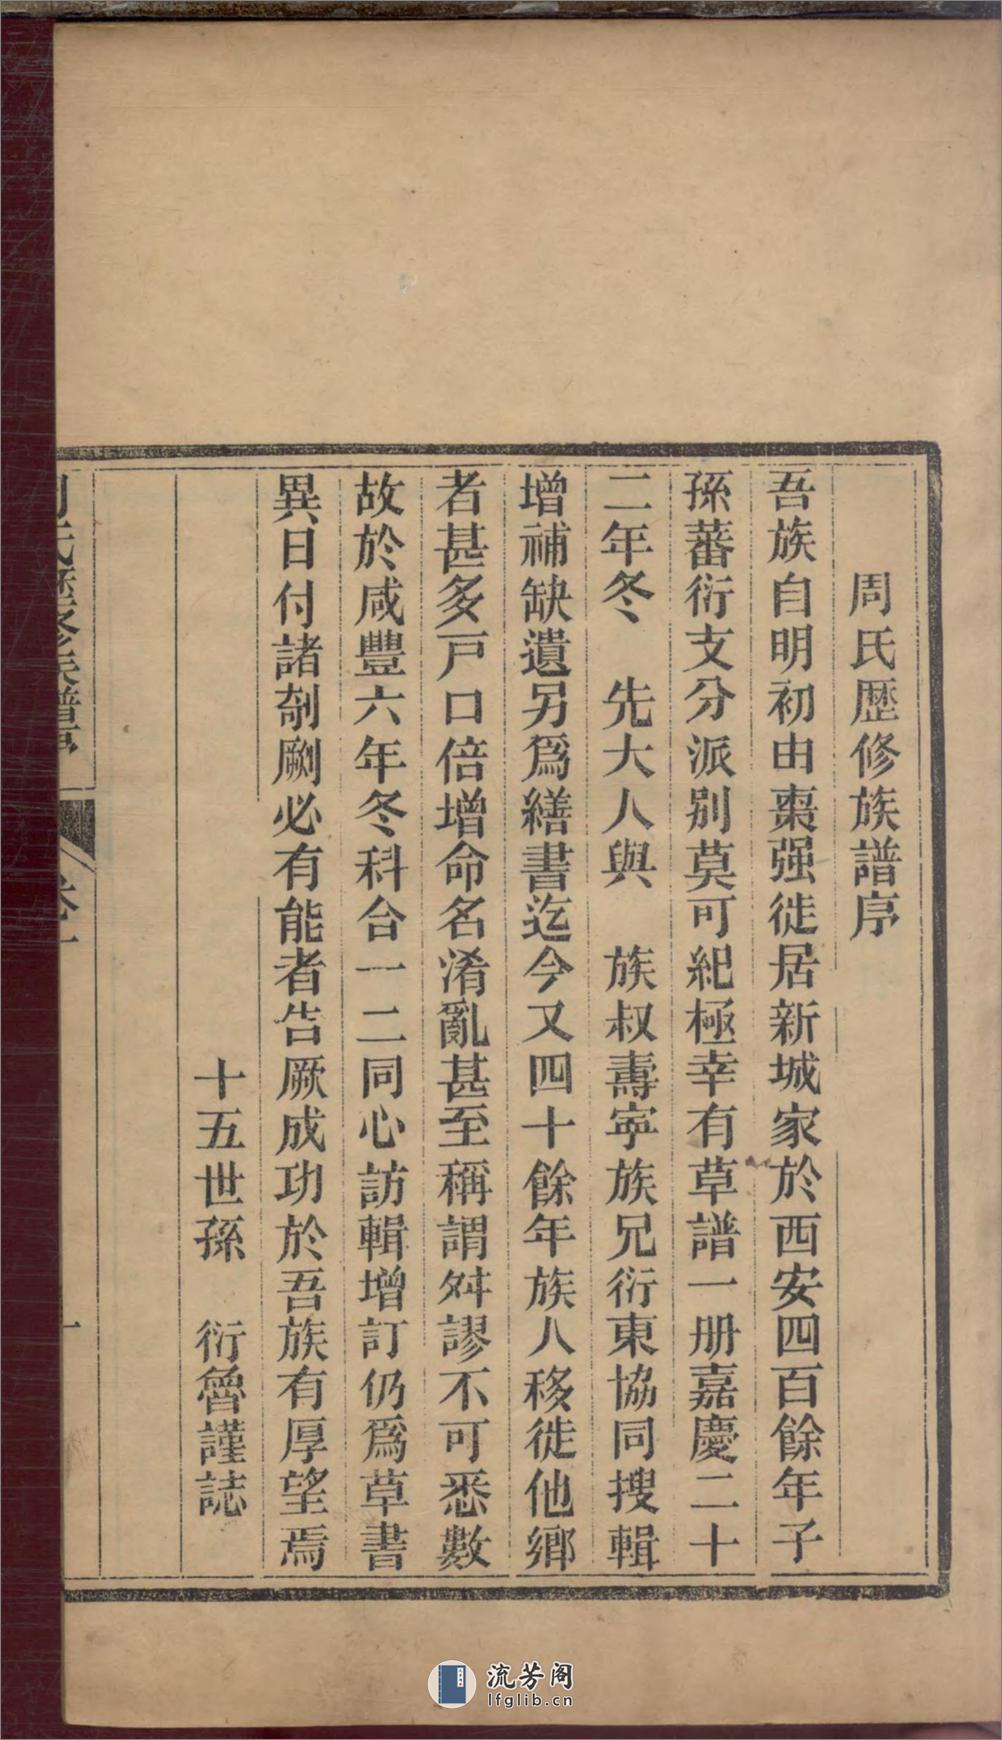 周氏歷修族譜序
吾族自明初由棗强徙居新城家於西安四百餘年子
孫蕃衍支分派别莫可紀極幸有草譜一册嘉慶二十
二年冬　先大人與　族叔壽寧族兄衍東協同搜輯
增補缺遺另爲繕書迄今又四十餘年族人移徙他鄉
者甚多戸口倍增命名淆亂甚至稱謂舛謬不可悉數
故於咸豐六年冬科合一二同心訪輯增訂仍爲草書
異日付諸剞劂必有能者告厥成功於吾族有厚望焉
十五世孫　衍魯謹誌
周氏歷修族譜序　卷一　一
流芳阁
lfglib.cn